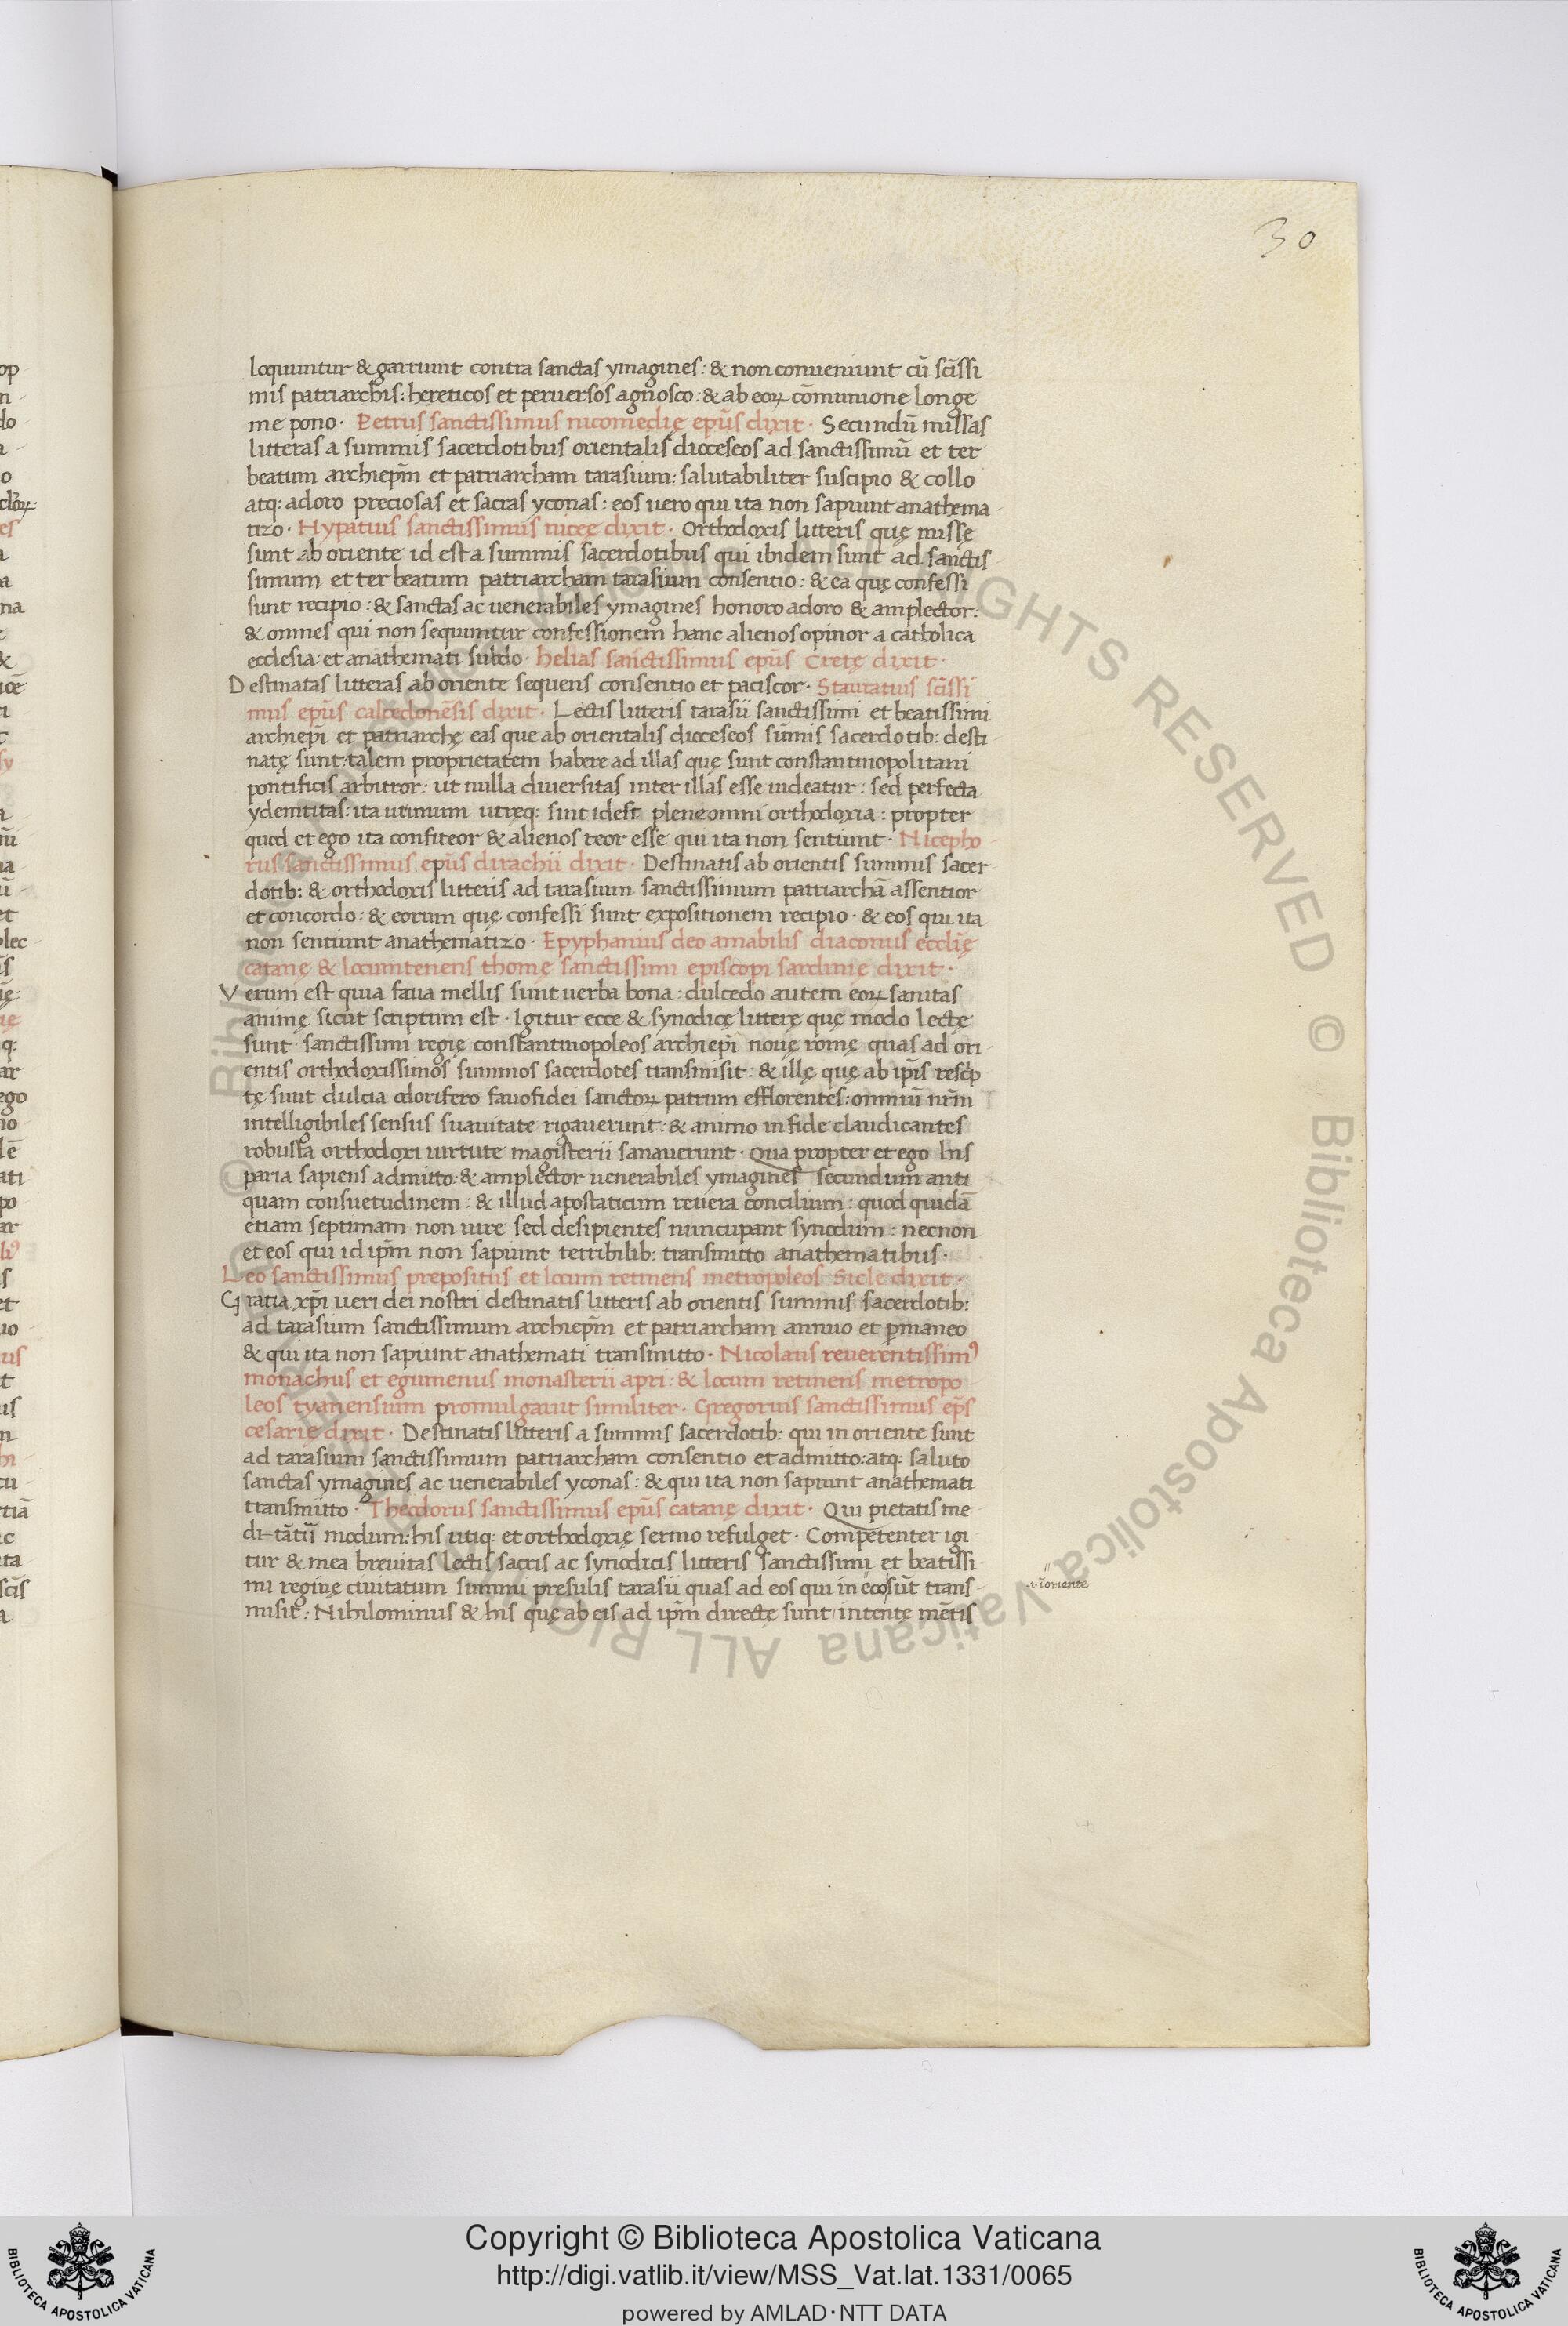 30
loquuntur & garriunt contra sanctas ymagines: & non conueniunt cũ scĩssi
mis patriarchis: hereticos et peruersos agnosco: & ab eoꝝ cõmunione longe
me pono· Petrus sanctissimus nicomedię ep̃us dixit· Secundũ missas
litteras a summis sacerdotibus orientalis dioceseos ad sanctissimũ et ter
beatum archiep̃m et patriarcham tarasium: salutabiliter suscipio & collo
atq: adoro preciosas et sacras yconas: eos uero qui ita non sapiunt anathema-
tizo· Hypatius sanctissimus nicęe dixit· Orthodoxis litteris quę missę
sunt ab oriente id est a summis sacerdotibus qui ibidem sunt ad sanctis
simum et ter beatum patriarcham tarasium consentio: & ea quę confessi
sunt recipio: & sanctas ac uenerabiles ymagines honoro adoro & amplector:
& omnes qui non sequuntur confessionem hanc alienos opinor a catholica
ecclesia: et anathemati subdo· helias sanctissimus ep̃us Cretę dixit·
Destinatas litteras ab oriente sequens consentio et paciscor· Stauratius scĩssi
mus ep̃us calcedonẽsis dixit· Lectis litteris tarasii sanctissimi et beatissimi
archiep̃i et patriarchę eas que ab orientalis dioceseos sũmis sacerdotib: desti-
natę sunt: talem proprietatem habere ad illas quę sunt constantinopolitani
pontificis arbitror: ut nulla diuersitas inter illas esse uideatur: sed perfecta
ydemtitas: ita utimum utręq: sint idest plene omni orthodoxia: propter
quod et ego ita confiteor & alienos reor esse qui ita non sentiunt· Nicepho-
rus sanctissimus ep̃us dirachii dixit· Destinatis ab orientis summis sacer
dotib: & orthodoxis litteris ad tarasium sanctissimum patriarchã assentior
et concordo: & eorum quę confessi sunt expositionem recipio· & eos qui ita
non sentiunt anathematizo· Epyphanius deo amabilis diaconus ecclię
catanę & locumtenens thomę sanctissimi episcopi sardinię dixit·
Verum est quia faua mellis sunt uerba bona: dulcedo autem eoꝝ sanitas
animę sicut scriptum est· Igitur ecce & synodicę litterę quę modo lectę
sunt· sanctissimi regię constantinopoleos archiep̃i nouę romę quas ad ori-
entis orthodoxissimos summos sacerdotes transmisit: & illę quę ab ip̃is rescp
tę sunt dulcia odorifero fauo fidei sanctoꝝ patrum efflorentes: omniũ nr̃m
intelligibiles sensus suauitate rigauerunt: & animo in fide claudicantes
robusta orthodoxi uirtute magisterii sanauerunt· Qua propter et ego his
paria sapiens admitto: & amplector uenerabiles ymagines secundum anti
quam consuetudinem: & illud apostaticum reuera concilium: quod quidã
etiam septimam non iure sed desipientes nuncupant synodum: necnon
et eos qui id ip̃m non sapiunt terribilib: transmitto anathematibus·
Leo sanctissimus prepositus et locum retinens metropoleos Sicle dixit·
Gratia xp̃i ueri dei nostri destinatis litteris ab orientis summis sacerdotib:
ad tarasium sanctissimum archiep̃m et patriarcham annuo et ꝑmaneo
& qui ita non sapiunt anathemati transmitto· Nicolaus reuerentissimꝰ
monachus et egumenus monasterii apri: & locum retinens metropo-
leos tyanensium promulgauit similiter· Gregorius sanctissimus ep̃s
cesarię dixit· Destinatis litteris a summis sacerdotib: qui in oriente sunt
ad tarasium sanctissimum patriarcham consentio et admitto: atq: saluto
sanctas ymagines ac uenerabiles yconas: & qui ita non sapiunt anathemati
transmitto· Theodorus sanctissimus ep̃us catanę dixit· Qui pietatis me-
di-tãtũ modum: his utiq: et orthodoxię sermo refulget· Competenter igi
tur & mea breuitas lectis sacris ac synodicis litteris sanctissimi et beatissi-
mi reginę ciuitatum summi presulis tarasii quas ad eos qui in eoo sũt trans-
·i· ĩ oriente
misit: Nihilominus & his quę ab eis ad ip̃m directę sunt intentę mẽtis
Copyright © Biblioteca Apostolica Vaticana
http://digi.vatlib.it/view/MSS_Vat.lat.1331/0065
powered by AMLAD·NTT DATA